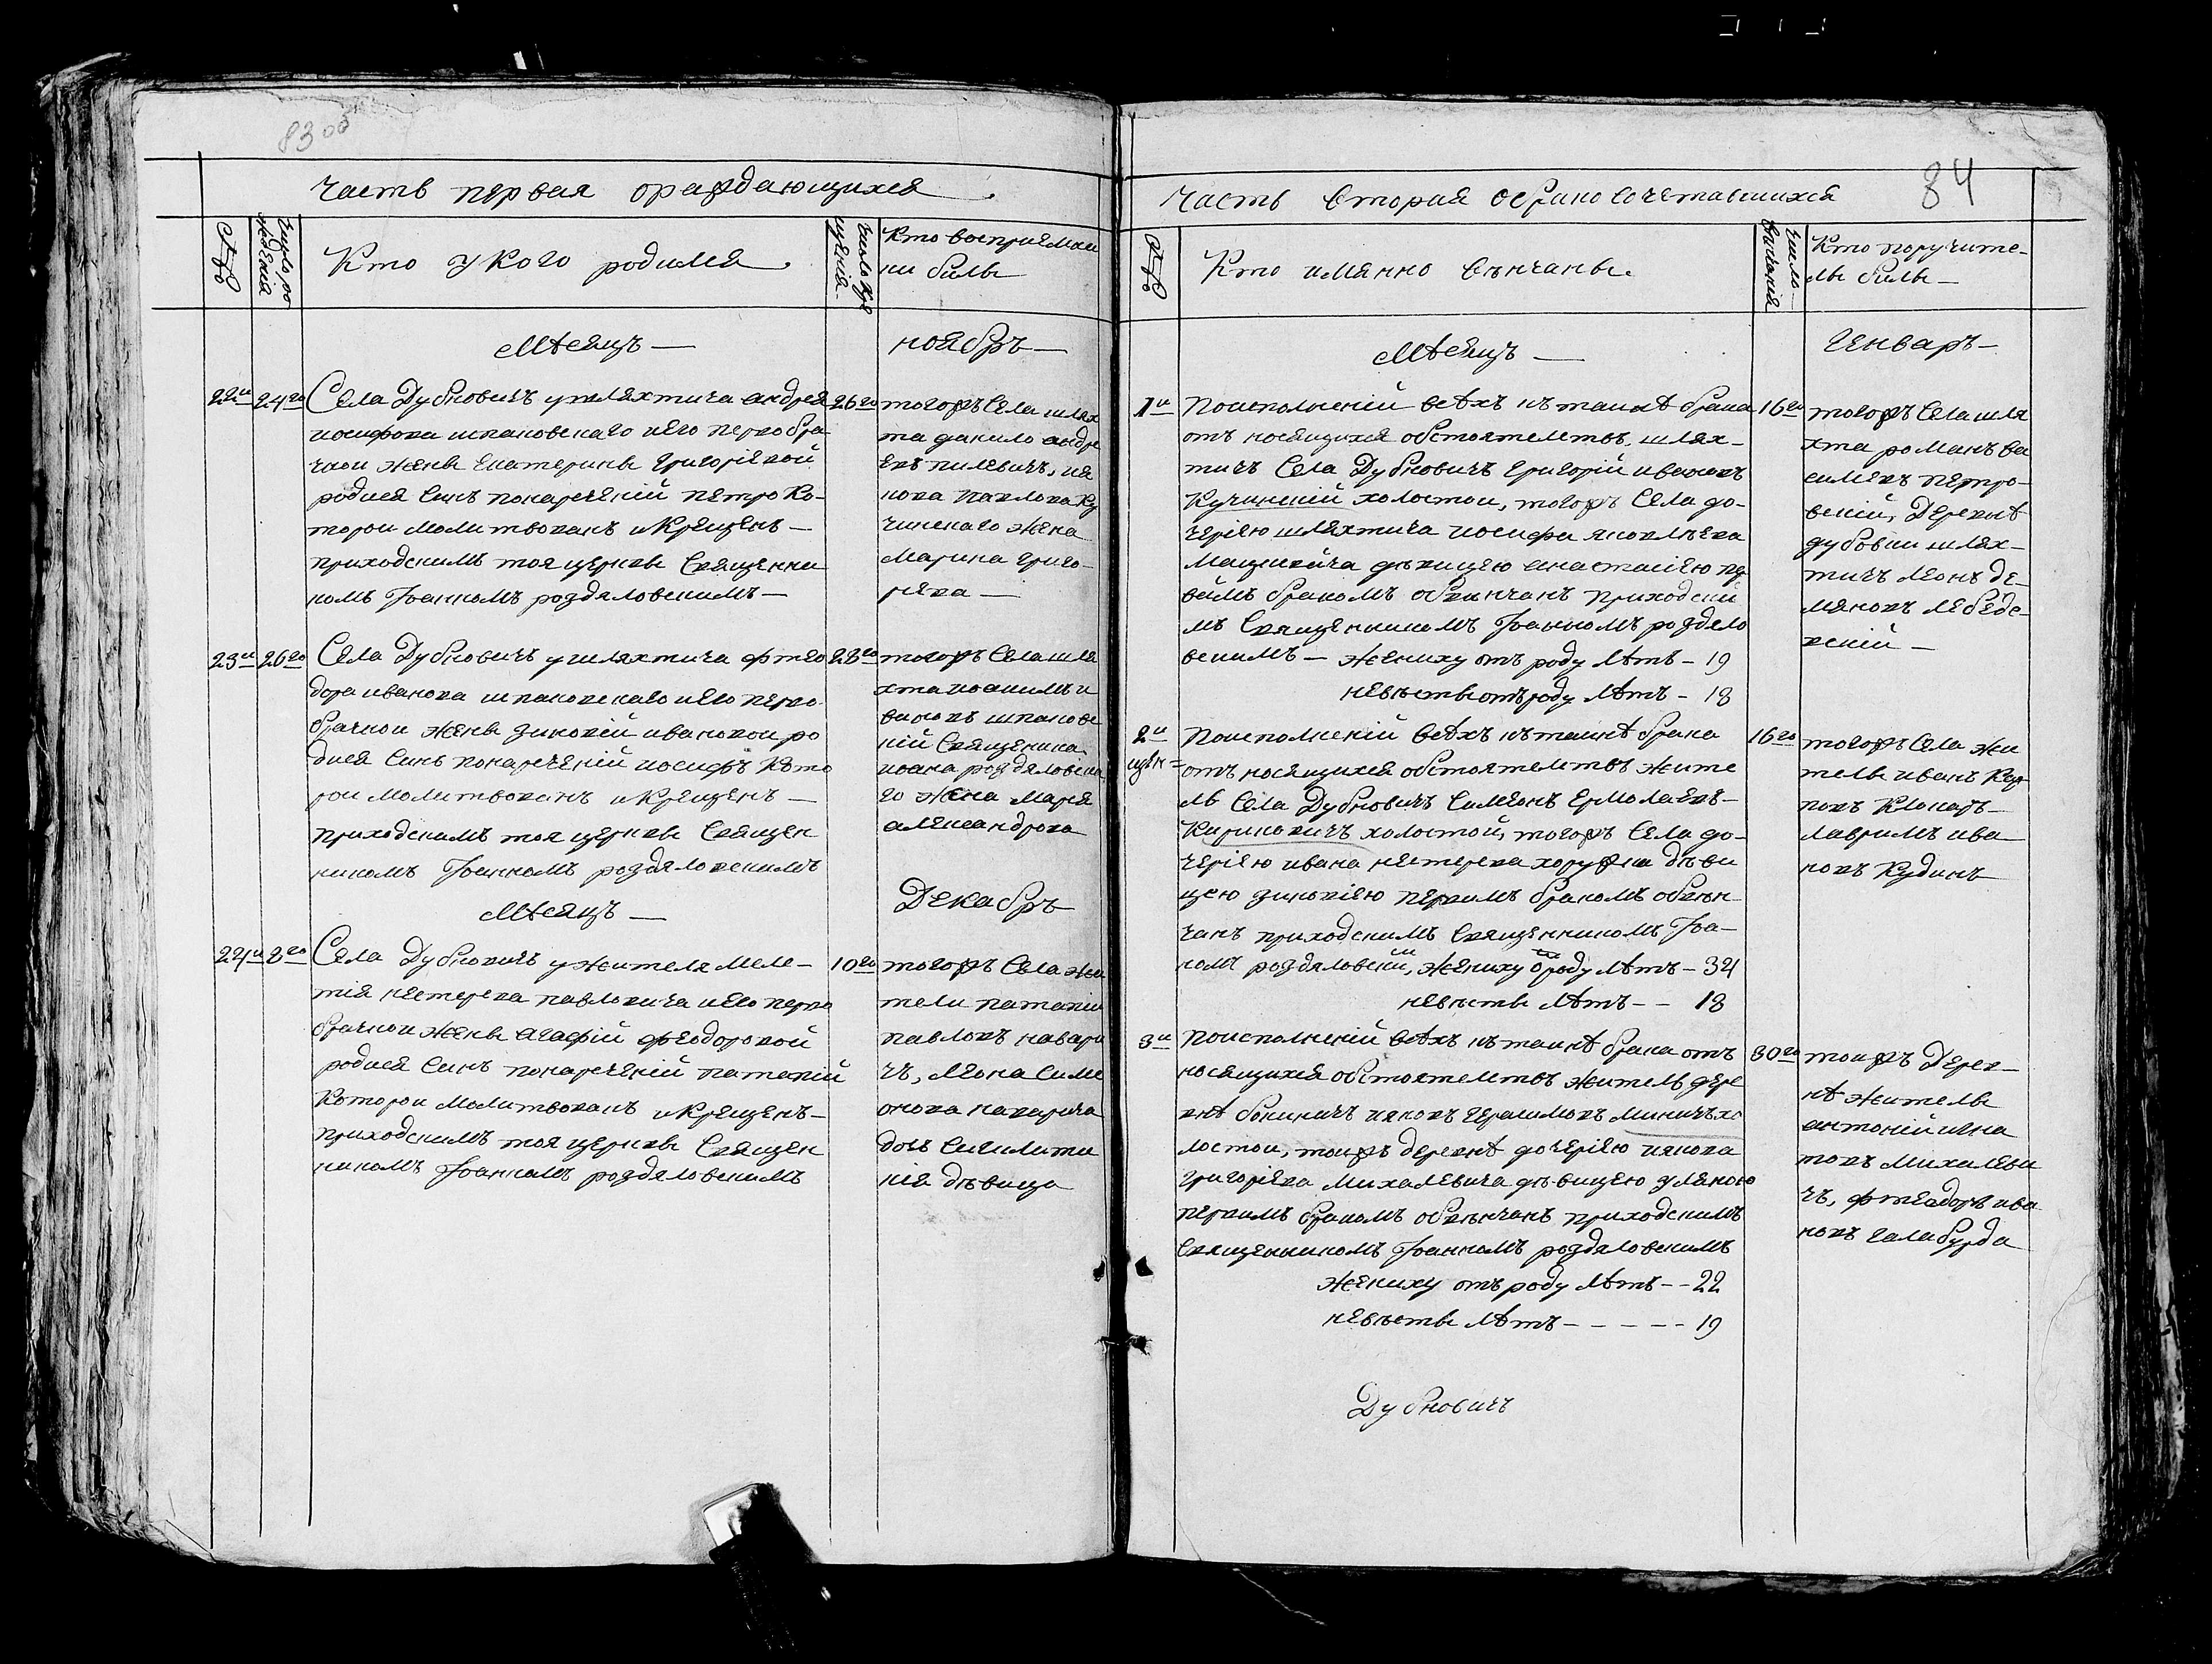 83 об
часть первая орождающихся
Число рождения
Кто у Кого родился
Число крещения
Кто восприемни
ки были
Мѣсяцъ — ноябрь —
22и 24го Села Дубновичъ ушляхтича андрея 26го
иосифова шпаковскаго иего первобра
чной жены Екатерины григоріевой
родися Синъ понареченій петро Ко-
торои Молитвованъ иКрещенъ —
приходскимъ тоя церкви Священни
комъ Іоанномъ роздяловскимъ —
тогожъ Села шлях
та данило андре
евъ пилевичъ, ия
кова павлова Ку
чинскаго Жена
Марина григо-
рева —
23и 26го Села Дубновичъ ушляхтича фтео 28го
дора иванова шпаковскаго иего перво
брачной жены зиновій ивановои ро
дися Синъ понареченій иосифъ Кото
рои Молитвованъ иКрещенъ —
приходскимъ тоя церкви Священ
никомъ Іоанномъ роздяловскимъ
тогожъ Села шля
хта иоакимъ и
вановъ шпаковс
кій Священика
иоана роздяловска
го Жена Марія
александрова
Мѣсяцъ — Декабрь
24и 8го Села Дубновичъ ужителя Меле- 10го
тія нестерева павловича иего перво
брачной жены агафій феодоровой
родися Синъ понареченій патапій
Которои Молитвованъ иКрещенъ-
приходскимъ тоя церкви Священ
никомъ Іоанномъ роздяловскимъ
тогожъ Села Жи
тели патапій
павловъ кавари
чъ, леона Симе
онова каварича
дочь
кія дѣвица
84
Часть вторая обрако Сочетавшихся
Число Вѣнчанія
Кто имянно вѣнчаны.
Кто поручите-
ли были —
Мѣсяцъ — генварь —
1и Поисполненій всѣхъ къ таинѣ брака 16го
отъ носящихся обстоятелтвъ, шлях-
тичъ Села Дубновичъ григорій ивановъ
Кучинскій холостои, тогожъ Села до-
черію шляхтича иосифа яковлева
Мацкевича дѣвицею анастасіею пер
вымъ бракомъ обвѣнчанъ приходски
мъ Священникомъ Іоанномъ роздело
вскимъ — жениху отъ роду лѣтъ - 19
невѣсты отъ роду лѣтъ - 18
тогожъ Села шля
хта романъ ва
силевъ петро-
вский, Деревнѣ
дубовки шлях-
тичъ леонъ де-
мяновъ лебеде-
вскій —
2и Поисполненій всѣхъ къ таинѣ брака 16го
отъ носящихся обстоятелтвъ жите
ль Села Дубновичъ Симеонъ Ермолаевъ-
Кириковичъ холостой, тогожъ Села до-
черію ивана нестерева хоружи дѣви
цею зиновіею первимъ бракомъ обвѣн-
чанъ приходскимъ Священникомъ Іоа-
номъ роздяловскимъ, жениху отроду лѣтъ - 34
невѣсты лѣтъ - - 18
тогожъ Села жи
тель иванъ Кар
повъ Клокаръ-
лавримъ ива
новъ Кудинъ
3и Поисполненій всѣхъ къ таинѣ брака отъ 30го
носящихся обстоятелтвъ житель дере
внѣ бокиничъ ияковъ герасимовъ миничъ хо
лостои, тоижъ деревнѣ дочерію иякова
григорева михалевича дѣвицею уляною
первимъ бракомъ обвѣнчанъ приходскимъ
Священникомъ Іоанномъ роздяловскимъ
жениху отъ роду лѣтъ - - 22
невѣсты лѣтъ - - - - - 19
тоижъ Дерев-
нѣ жители
антоній игна
товъ михалеви
чъ, фтеодоръ ива
новъ галабурда
Дубновичъ